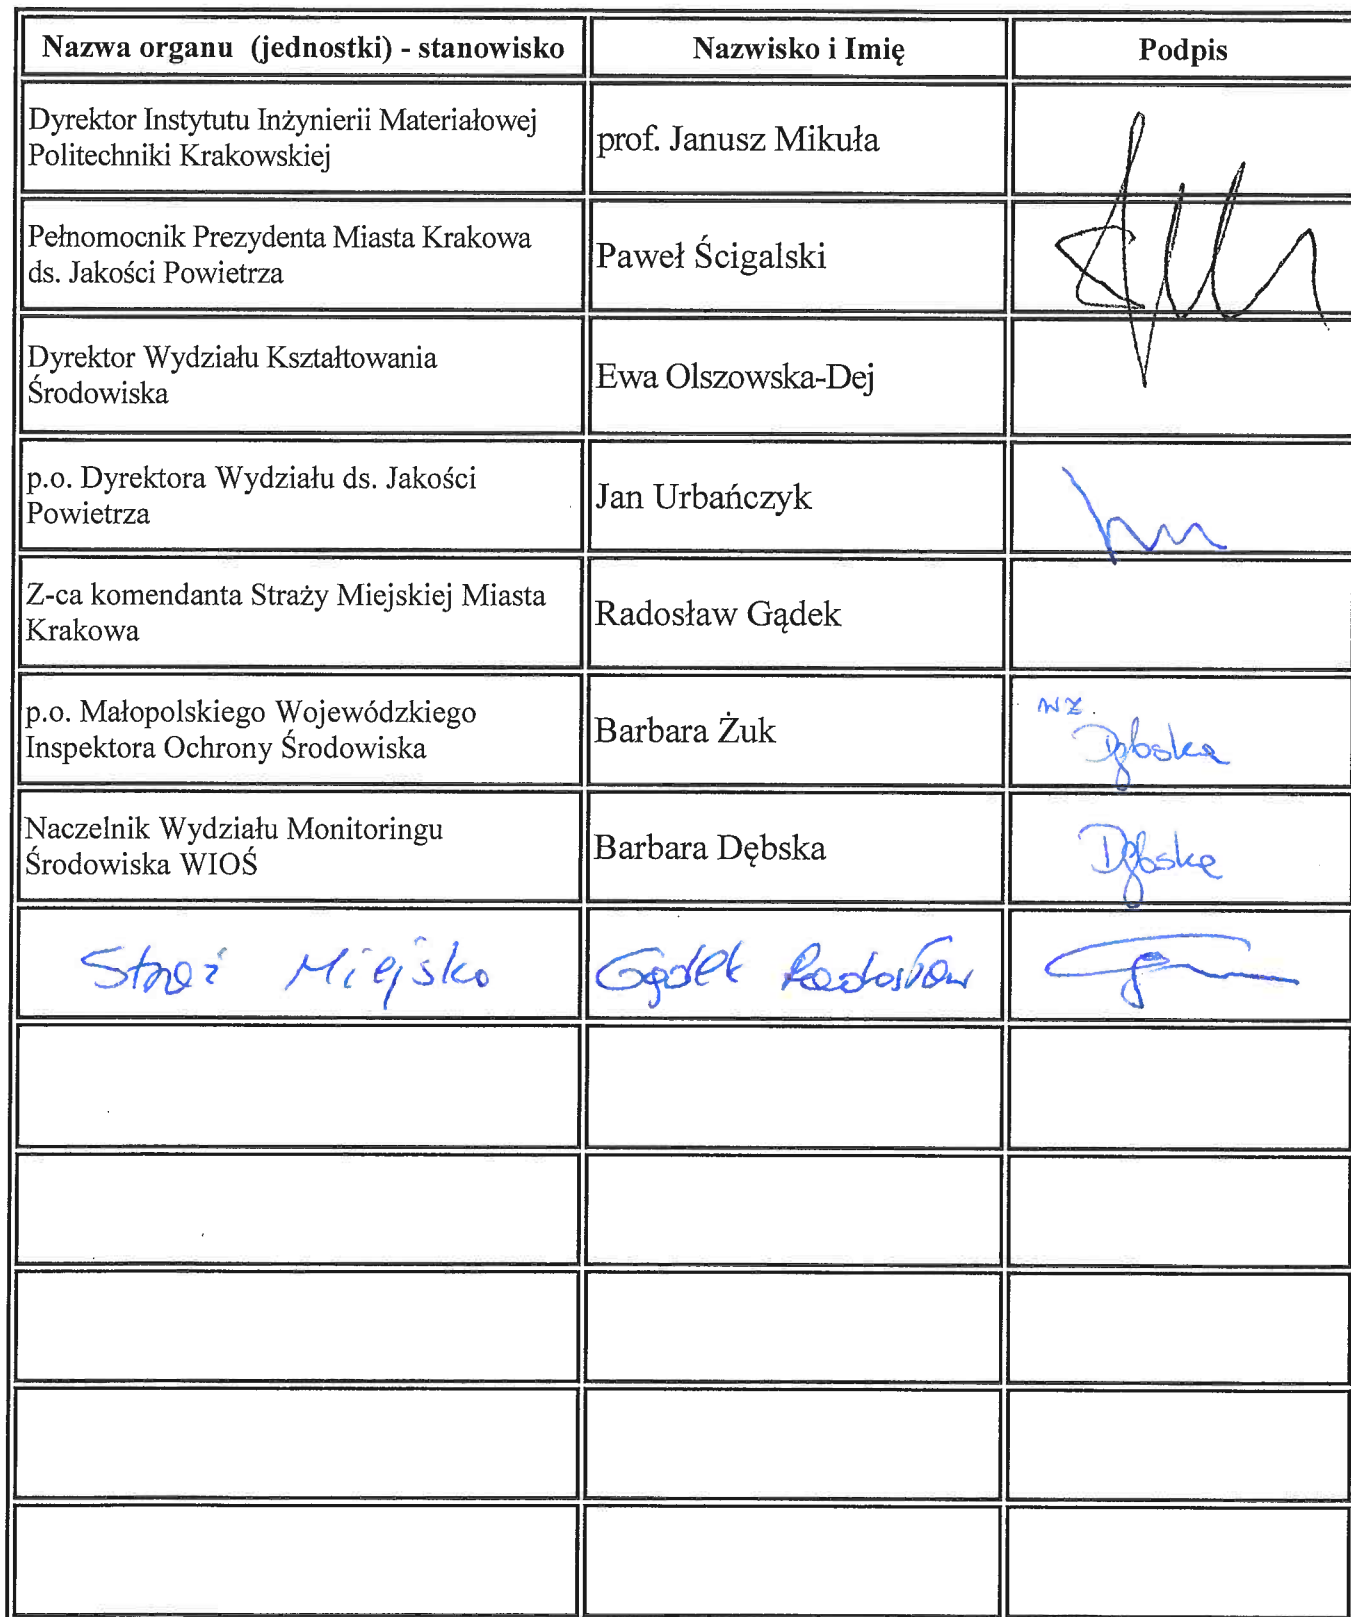 Nazwa organu (jednostki) - stanowisko Nazwisko i Imię Podpis
Dyrektor Instytutu Inżynierii Materiałowej
Politechniki Krakowskiej
prof. Janusz Mikuła
Pełnomocnik Prezydenta Miasta Krakowa
ds. Jakości Powietrza
Paweł Ścigalski
Dyrektor Wydziału Kształtowania
Środowiska
Ewa Olszowska-Dej
p.o. Dyrektora Wydziału ds. Jakości
Powietrza
Jan Urbańczyk
Z-ca komendanta Straży Miejskiej Miasta
Krakowa
Radosław Gądek
p.o. Małopolskiego Wojewódzkiego
Inspektora Ochrony Środowiska
Barbara Żuk
wz.
Dębska
Naczelnik Wydziału Monitoringu
Środowiska WIOŚ
Barbara Dębska
Dębska
Straż Miejska Gądek Radosław